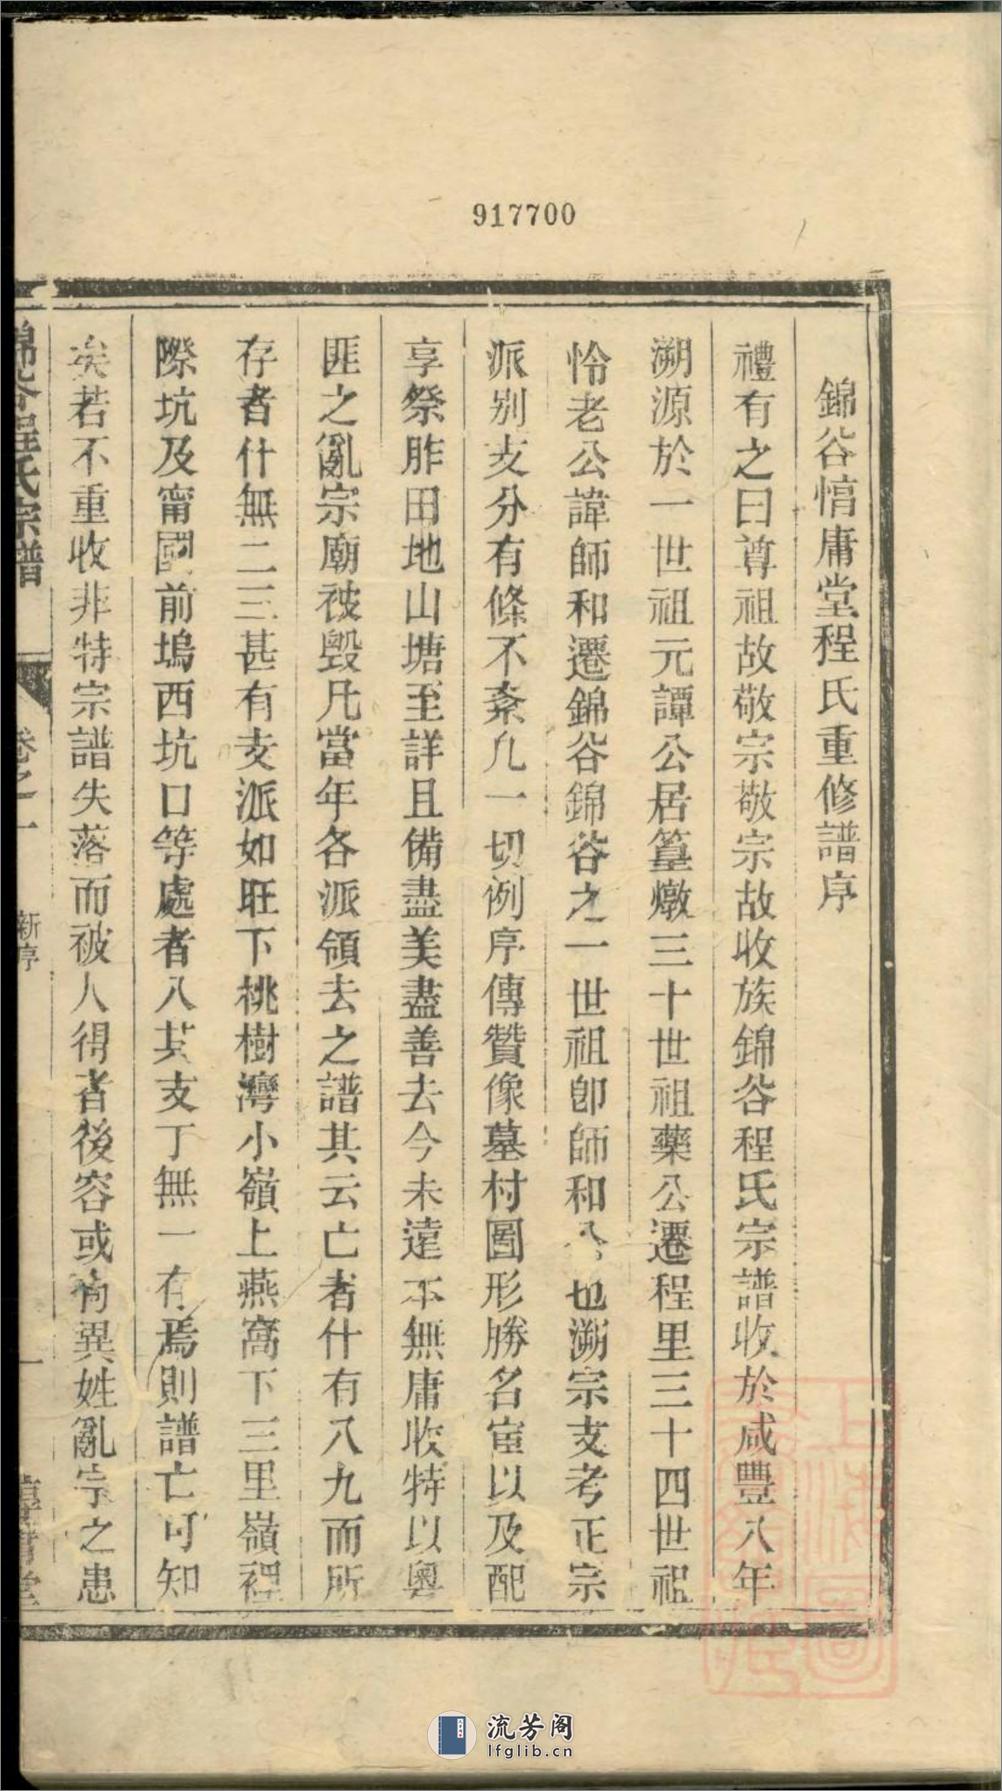 917700
錦谷惇庸堂程氏重修譜序
禮有之曰尊祖故敬宗敬宗故收族錦谷程氏宗譜收於咸豐八年
溯源於一世祖元譚公居篁燉三十世祖藥公遷程里三十四世祖
怜老公諱師和遷錦谷錦谷之一世祖卽師和公也溯宗支考正宗
派别支分有條不紊凡一切例序傳贊像墓村圖形勝名宦以及配
享祭胙田地山塘至詳且備盡美盡善去今未遠本無庸收特以粵
匪之亂宗廟被毁凡當年各派領去之譜其云亡者什有八九而所
存者什無二三甚有支派如旺下桃樹灣小嶺上燕窩下三里嶺裡
際坑及甯國前塢西坑口等處者八其支丁無一有焉則譜亡可知
矣若不重收非特宗譜失落而被人得者後容或有異姓亂宗之患
錦谷程氏宗譜
卷之一
新序
一
惇庸堂
上海圖
書館藏
流芳阁
lfglib.cn